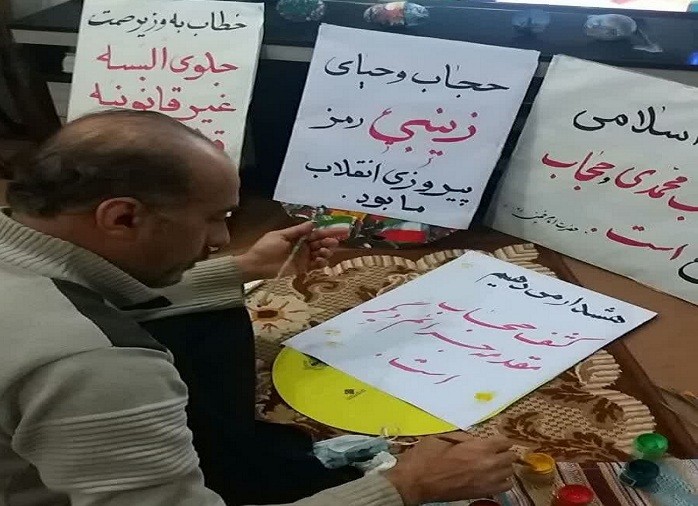 خطاب به وزیر صمت
جلوی البسه
غیر قانونیه
حجاب و حیای
زینبی رمز
پیروزی انقلاب
ما بود.
اسلامی
محمدی و حجاب
است.
هشدار می دهیم
کشف حجاب
مقدمه جرائم دیگر
است